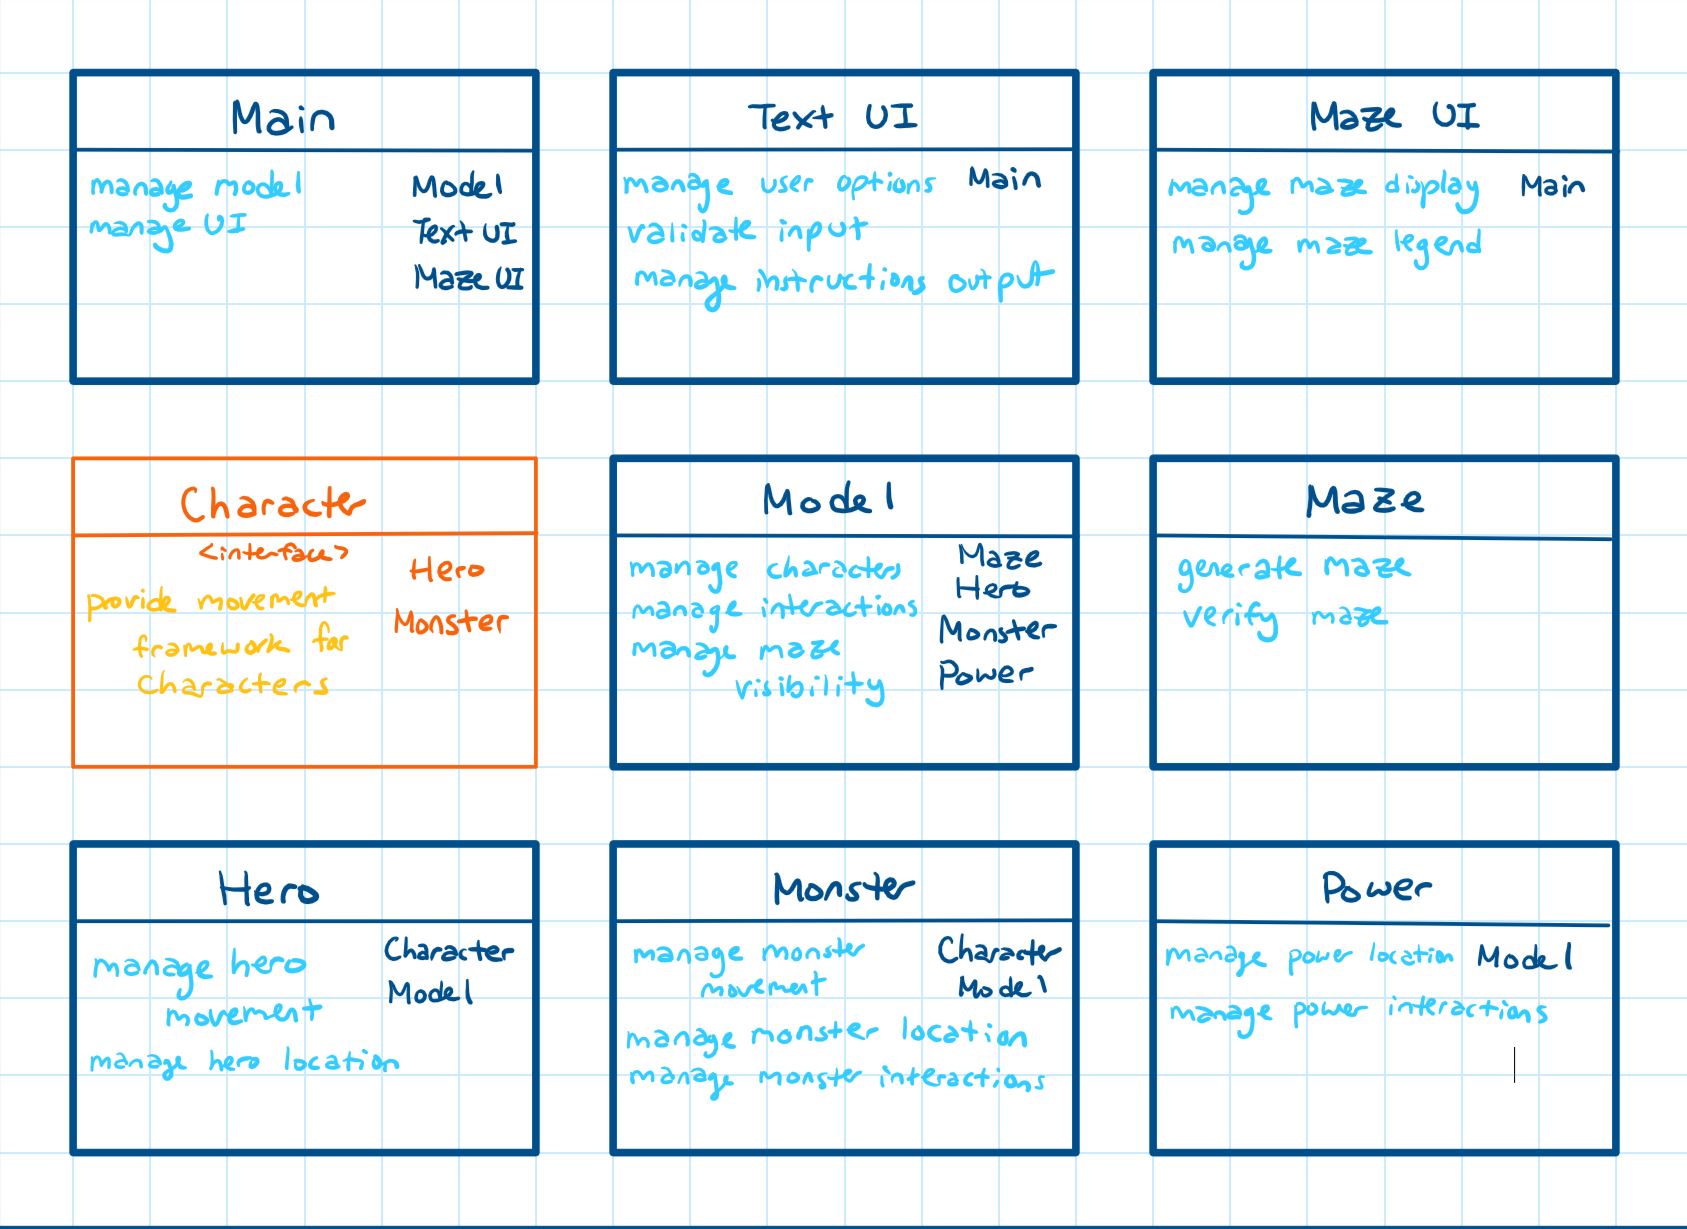 Main
manage model
manage UI
Model
Text UI
Maze UI
Text UI
manage user options
Main
validate input
manage instructions output
Maze UI
manage maze display
Main
manage maze legend
Character
<interface>
provide movement
framework for
characters
Hero
Monster
Model
manage characters
manage interactions
manage maze
visibility
Maze
Hero
Monster
Power
Maze
generate maze
verify maze
Hero
manage hero
movement
manage hero location
Character
Model
Monster
manage monster
movement
manage monster location
manage monster interactions
Character
Model
Power
manage power location
Model
manage power interactions